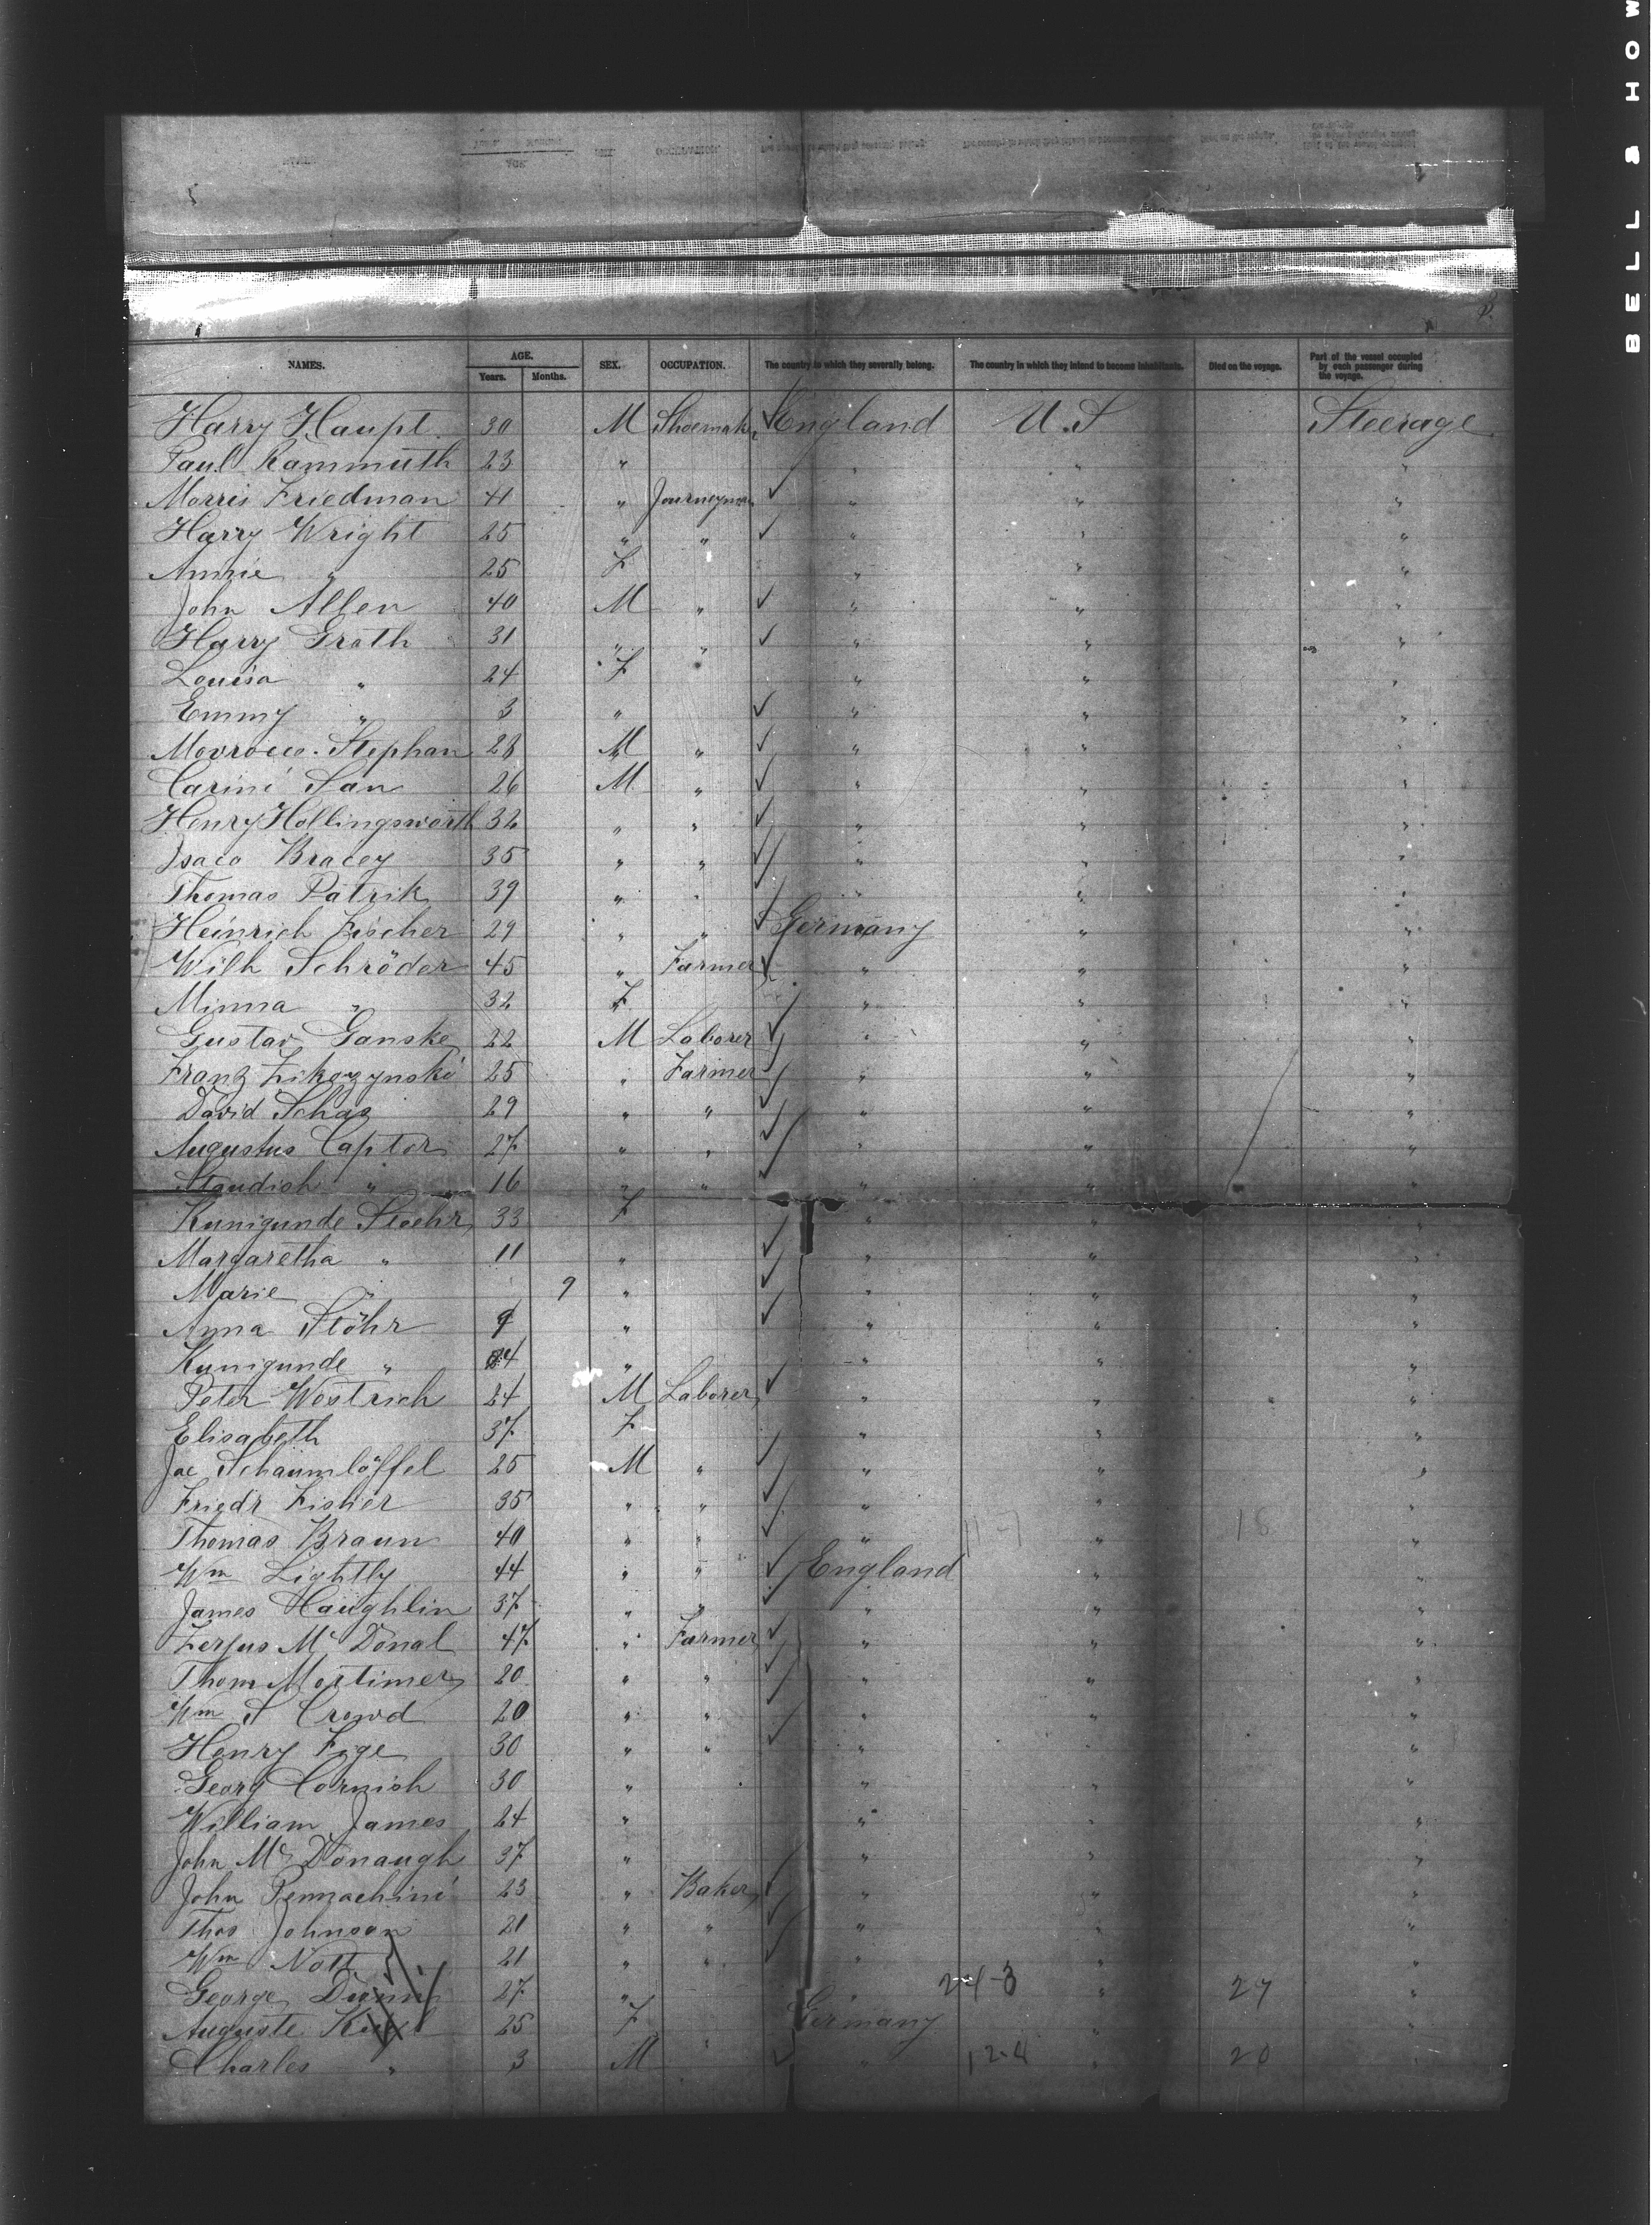 BELL & HOW
NAMES. AGE. Years. Months. SEX. OCCUPATION. The country in which they severally belong. The country in which they intend to become inhabitants. Died on the voyage. Part of the vessel occupied by each passenger during the voyage.
Harry Haupt 30 M Shoemaker England U.S Steerage
Paul Kammuth 23 " " " "
Morris Friedman 41 " Journeyman " " "
Harry Wright 25 " " " " "
Annie " 25 F " " "
John Allen 40 M " " " "
Harry Groth 31 " " " " "
Louisa " 24 F " " "
Emmy " 3 " " " "
Movrocco Stephan 28 M " " " "
Carini San 26 M " " " "
Henry Hollingsworth 32 " " " " "
Isaco Bracey 35 " " " " "
Thomas Patrik 39 " " " " "
Heinrich Fischer 29 " " Germany " "
Wilh Schröder 45 " Farmer " " "
Minna " 32 F " " "
Gustav Ganske 22 M Laborer " " "
Franz 25 " Farmer " " "
David Schaz 29 " " " " "
Augustus Captor 27 " " " " "
Standish " 16 " " " " "
Kunigunde Stoehr 33 F " " "
Margaretha " 11 " " " "
Marie " 9 " " " "
Anna Stöhr 9 " " " "
Kunigunde " 4 " " " "
Peter Westrich 24 M Laborer " " "
Elisabeth 37 F " " "
Jac Schaumlöffel 25 M " " " "
Friedr Fisher 35 " " " " "
Thomas Braun 40 " " " 11-7 " 18 "
Wm Lightly 44 " " England " "
James Haughlin 37 " " " " "
Ferfus Mc Donal 47 " Farmer " " "
Thom Mortimer 20 " " " " "
Wm S Crowd 20 " " " " "
Henry Fige 30 " " " " "
Georg Cornish 30 " " " "
William James 24 " " " "
John Mc Donaugh 37 " " " "
John Pennachini 23 " Baker " " "
Thos Johnson 21 " " " " "
Wm Nott 21 " " " " "
George Dunn 27 " 24-3 " 27 "
Auguste 25 F Germany " "
Charles " 3 M " 12-4 " 20 "